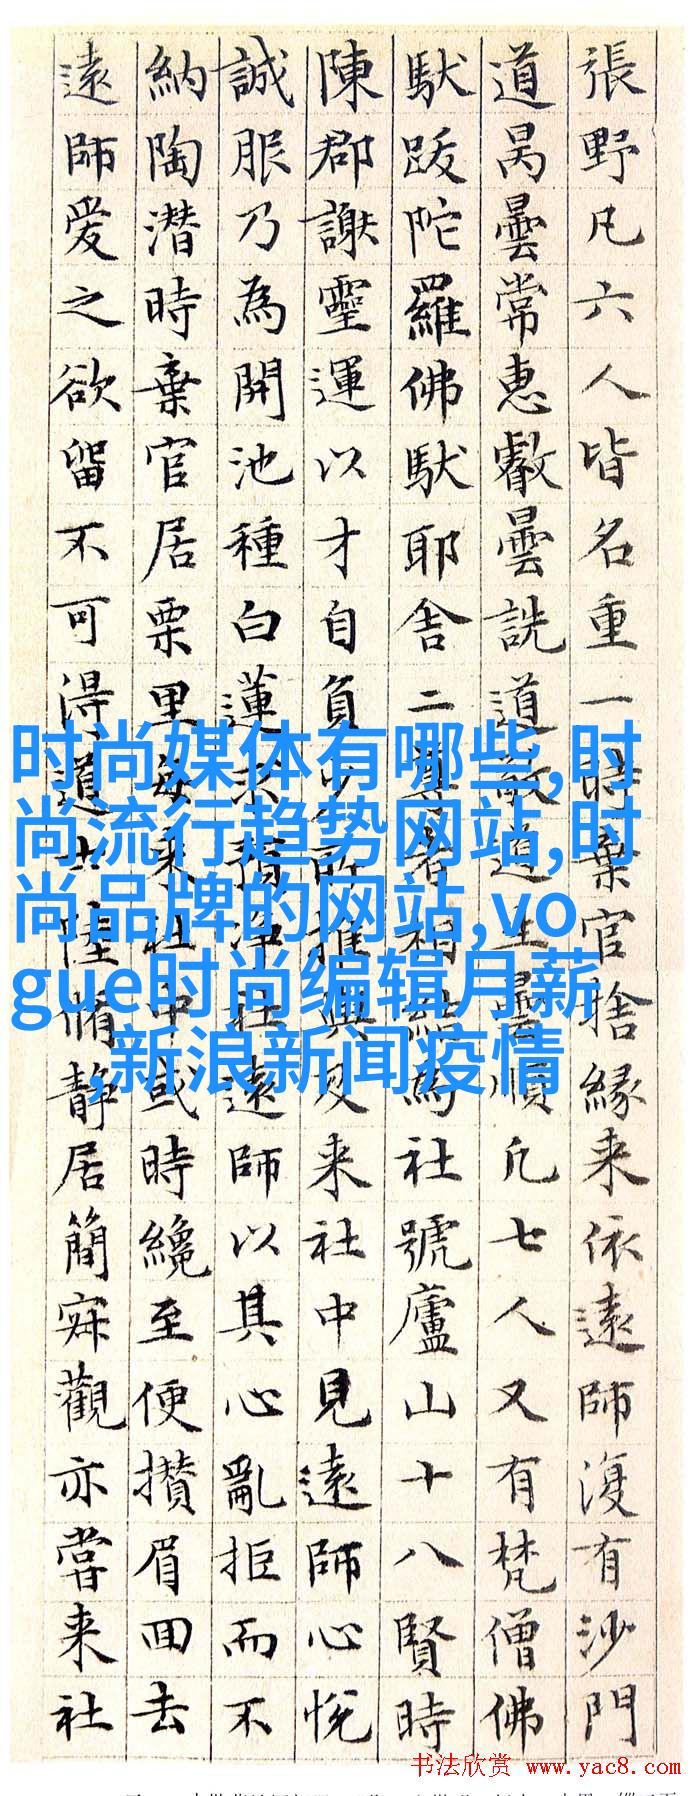 張野凡六人皆名重一時棄官捨緣来依遠師復有沙門
道昺曇常惠叡曇詵道敬道生曇順凡七人又有梵僧佛
馱跋陀羅佛馱耶舍二尊者相結為社號廬山十八賢時
陳郡謝靈運以才自負少所推與及来社中見遠師心悅
誠服乃為開池種白蓮求預淨社遠師以其心亂拒而不
納陶潛時棄官居栗里每来社中或時纔至便攢眉回去
遠師爱之欲留不可得道士陸脩靜居簡寂觀亦嘗来社
时尚媒体有哪些,时
尚流行趋势网站,时
尚品牌的网站,vo
gue时尚编辑月薪
,新浪新闻疫情
书法欣赏 www.yac8.com